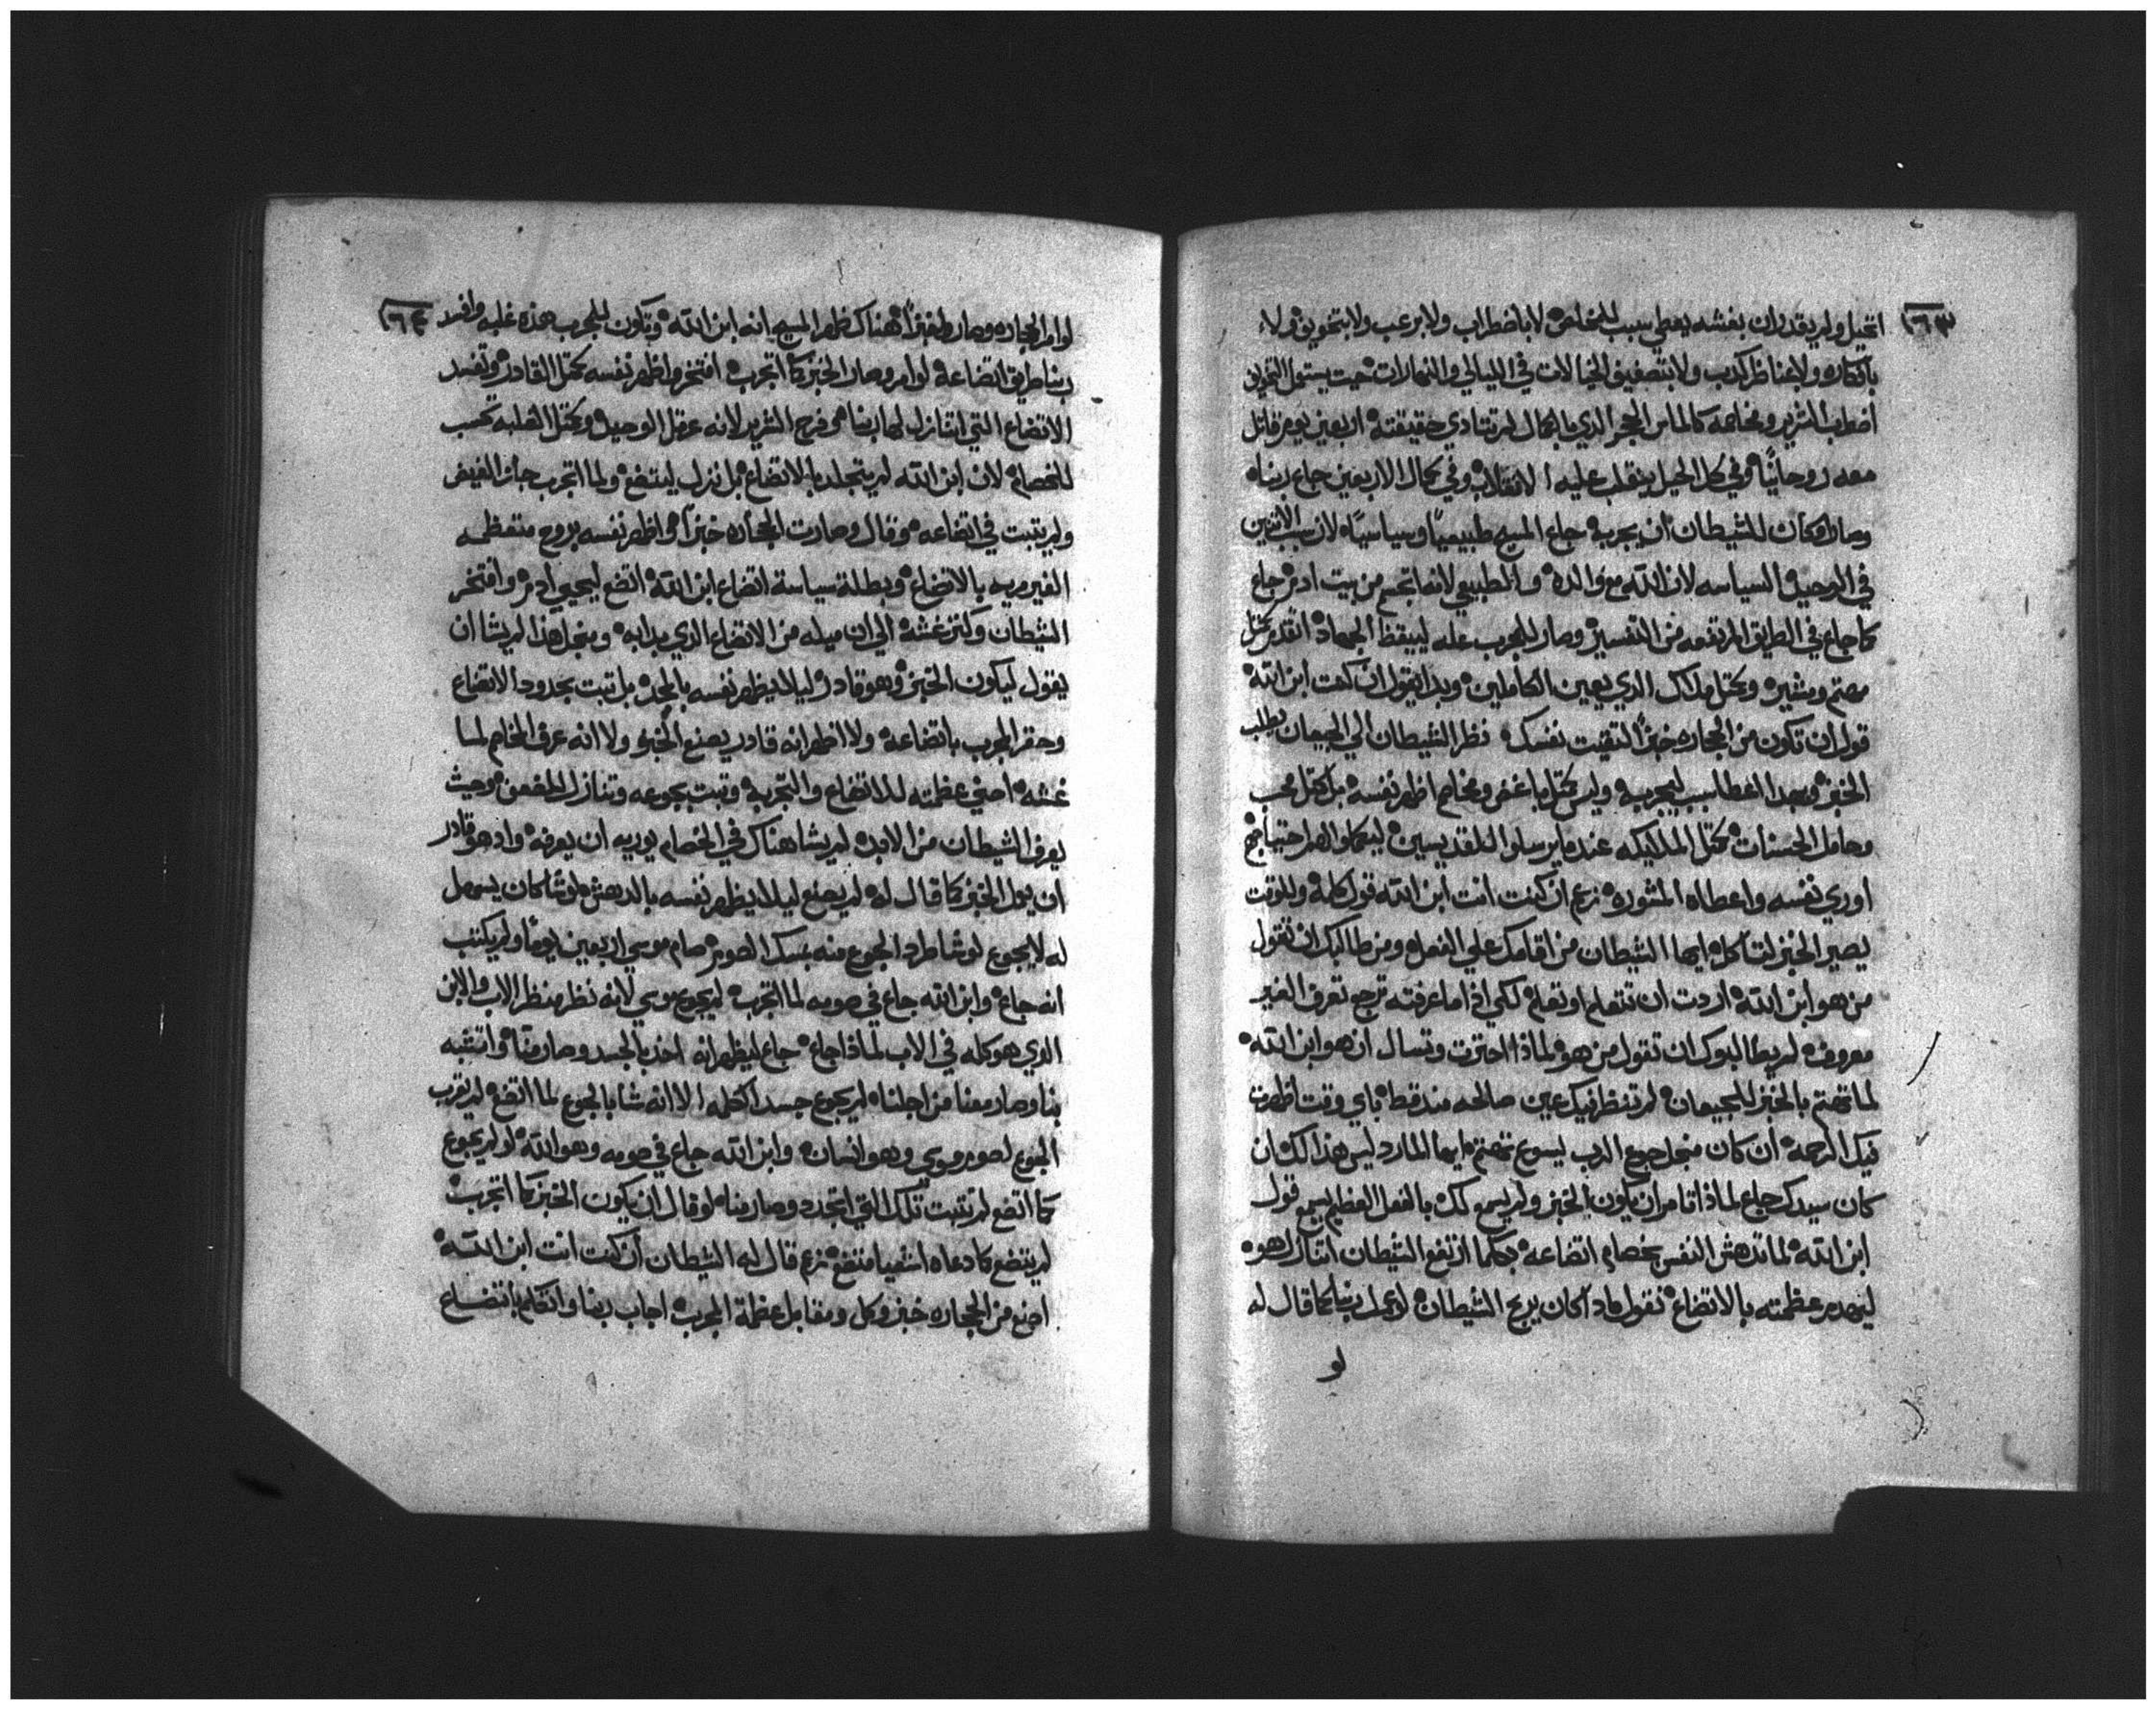 ٢٦٣
اتحيل ولم يقدر ان بغشه يعطي سبب للمخاصم لا باضطراب ولا برعب ولا بتخويف ولاء
بافكاره ولا بمناظر كدب ولا الخيالات في الليالي والنهارات حيت يستعمل
اضطراب الشرير ومخاصمه كالماس الحجر الدي لم حقيقته اربعين يوم قاتل
معه روحانيًا وفي كل الحيل ينقلب عليه الانقلاب وفي كمال الاربعين جاع ربنا
وصار مكان للشيطان ان يجربه جاع المسيح طبيعيًا وسياسيًا لان سبب الاتنين
في الوحيد السياسه لان الله مع والده والطبيعي لانه اتجسم من بيت ادم جاع
كما جاع في الطريق المرتفعه من التفسير وصار للمجرب عله ليبقظ الجهاد اتقدم كمتل
مهتم ومشير وكمتل ملاك الدي يعين الكاملين وبدا يقول ان كنت ابن الله
قول ان تكون من الحجاره خبز التقيت نفسك نظر الشيطان الي الجيعان يطلب
الخبز وبهدا اعطا سبب لتجربه وليس كمتل باغض ومخاصم اظهر نفسه بل كمتل محب
وحامل الحسنات كمتل الملايكه عنده يرسلوا للقديسين ليكملوا لهم احتياجهم
اوري نفسه واعطاه المشوره زعم ان كنت انت ابن الله قول كلمة وللوقت
يصير الخبز لتاكله ايها الشيطان من اقامك علي الفعله ومن طالبك ان تقول
من هو ابن الله اردت ان تتعلم او تعلم لكي اذا ما عرفته ترجع تعرف الغير
معروف لم يطالبوك ان تقول من هو لماذا احترت وتسال ان هو ابن الله
لما تهتم بالخبز للجيعان لم تنظر فيك عين صالحه منذ قط باي وقت اظهرت
فيك الرحمة ان كان منجل جوع الرب يسوع تهتم ايها المارد ليس هذا لك ان
كان سيدك جاع لماذا تامر ان يكون الخبز ولم يسمع لك بالفعل العظيم يسمع قول
ابن الله لما تدهش النفس بخصام اتضاعه بمكما ارتفع الشيطان اتنازل هو
ليهدم عظمته بالاتضاع نقول ماذا كان يربح الشيطان لو عمل ربنا كما قال له
لو
٢٦٤
لو امر الحجاره وصارو خبزًا هناك ظهر المسيح انه ابن الله وتكون للمجرب بهذه غلبه وافسد
ربنا طريق اتضاعه لو امر وصار الخبز كما اتجرب افتخر واظهر نفسه كمتل القادر وتفسد
الاتضاع التي اتنازل لها ربنا فرح الشرير لانه عرقل الوحيد وكمتل الغلبه تحسب
للخصام لان ابن الله لم يتجلد بالاتضاع بل نزل ليتضع ولما اتجرب جاز الفيض
ولم يتبت في اتضاعه وقال وصارت الحجاره خبزًا واظهر نفسه بروح متعظمه
الغير مريد بالاتضاع وبطلة سياسة اتضاع ابن الله اتضع ليحيي ادم وافتخر
الشيطان وكتر غشه الي ان ميله من الاتضاع الذي بدا به ومنجل هذا لم يشا ان
يقول ليكون الخبز وهو قادر ليلا يظهر نفسه بالمجد بل اتبت بحدود الاتضاع
وحقر المجرب باتضاعه ولا اظهر انه قادر يصنع الخبز ولا انه عرف المخاصم لما
غشه اخفي عظمته للاتضاع والتجربه وتبت بجوعه وتنازل وحيث
يعرف الشيطان من الابد لم يشا هناك في الخصام يوريه ان يعرفه واد هو قادر
ان يعمل الخبز كما قال له لم يصنع ليلا يظهر نفسه بالدهش لو شا كان يسهل
له لا يجوع لو شا طرد الجوع منه بمسك الصوم صام موسي اربعين يومًا ولم يكتب
انه جاع وابن الله جاع في صومه لما اتجرب لم يجوع موسي لانه نظر منظر الاب والابن
الذي هو كله في الاب لماذا جاع جاع ليظهر انه اخذ بالجسد وصار منا واتشبه
بنا وصار معنا من اجلنا لم يجوع جسد اكمله الا انه شا بالجوع لما اتضع لم تقرب
الجوع لصوم موسي وهو انسان وابن الله جاع في صومه وهو الله لو لم يجوع
كما اتضع لم تتبت تلك التي اتجدد وصار منا لو قال ان يكون الخبز كما اتجرب
لم يتضع كما دعاه اشعيا متضع زعم قال له الشيطان ان كنت انت ابن الله
اصنع من الحجاره خبز وكل ومقابل عظمة المجرب اجاب ربنا واتكلم باتضاع